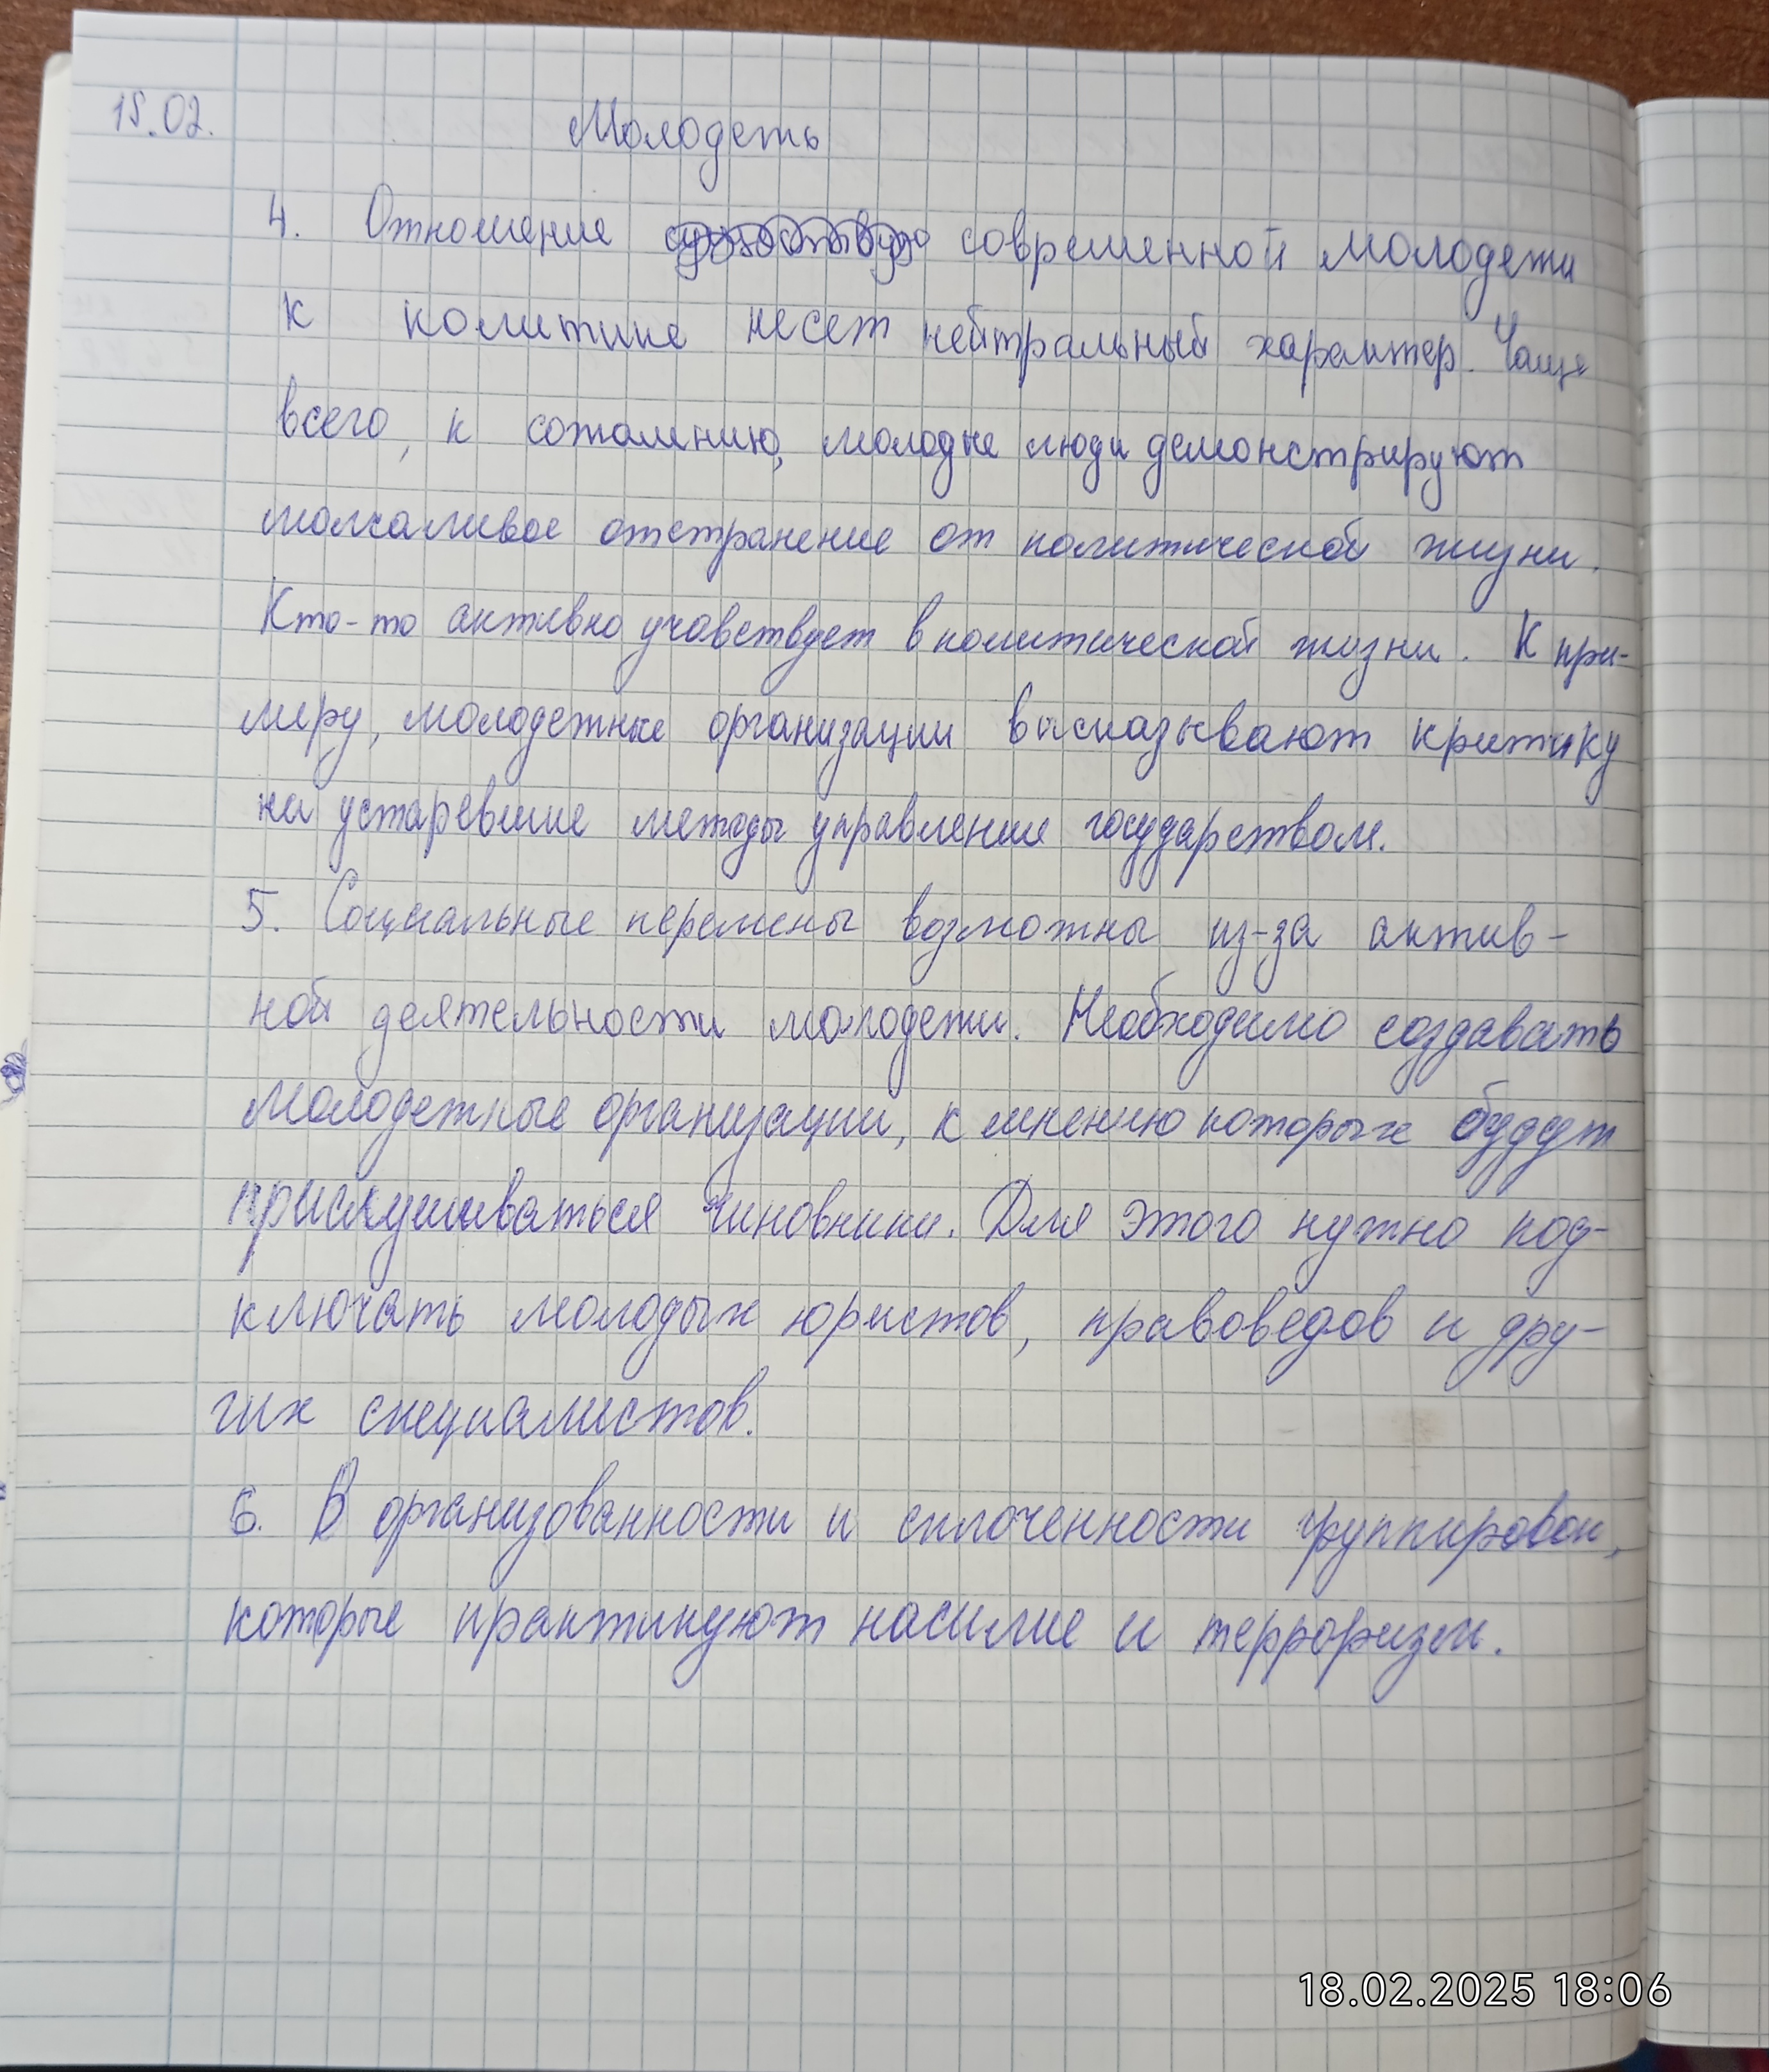 15.02.
Молодежь
4. Отношение современной молодежи
к политике несет нейтральный характер. Чаще
всего, к сожалению, молодые люди демонстрируют
молчаливое отстранение от политической жизни.
Кто-то активно учавствует в политической жизни. К при-
меру, молодежные организации высказывают критику
на устаревшие методы управления государством.
5. Социальные перемены возможны из-за актив-
ной деятельности молодежи. Необходимо создавать
молодежные организации, к мнению которых будут
прислушиваться чиновники. Для этого нужно под-
ключать молодых юристов, правоведов и дру-
гих специалистов.
6. В организованности и сплоченности группировок,
которые практикуют насилие и терроризм.
18.02.2025 18:06